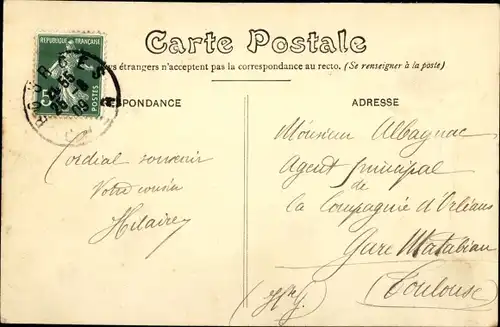 Carte Postale
étrangers n'acceptent pas la correspondance au recto. (Se renseigner à la poste)
REPUBLIQUE FRANÇAISE
POSTES
BOURGES
RESPONDANCE
ADRESSE
Cordial souvenir
Votre cousin
Hilaire
Monsieur Albagnac
Agent principal
de
la Compagnie d'Orléans
Gare Matabiau
Toulouse
(Hte G.)